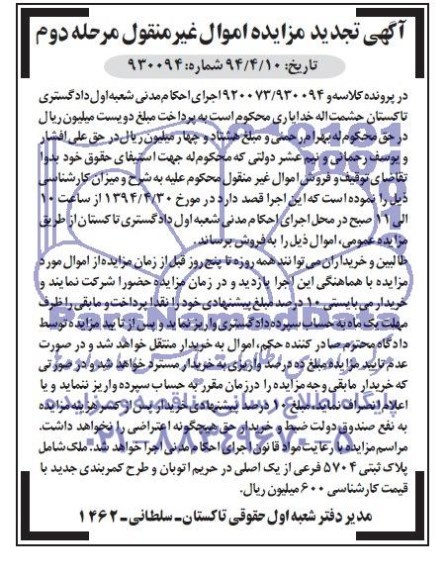 آگهی تجدید مزایده اموال غیرمنقول مرحله دوم
تاریخ: ۹۴/۴/۱۰ شماره: ۹۳۰۰۹۴
در پرونده کلاسه و ۹۲۰۰۷۳/۹۳۰۰۹۴ اجرای احکام مدنی شعبه اول دادگستری
تاکستان حشمت اله خدایاری محکوم است به پرداخت مبلغ دویست میلیون ریال
در حق محکوم له بهرام رحمتی و مبلغ هشتاد و چهار میلیون ریال در حق علی افشار
و یوسف رحمانی و نیم عشر دولتی که محکوم له جهت استیفای حقوق خود بدوا
تقاضای توقیف و فروش اموال غیر منقول محکوم علیه به شرح و میزان کارشناسی
ذیل را نموده است که این اجرا قصد دارد در مورخ ۱۳۹۴/۴/۳۰ از ساعت ۱۰
الی ۱۱ صبح در محل اجرای احکام مدنی شعبه اول دادگستری تاکستان از طریق
مزایده عمومی، اموال ذیل را به فروش برساند.
طالبین و خریداران می توانند همه روزه تا پنج روز قبل از زمان مزایده از اموال مورد
مزایده با هماهنگی این اجرا بازدید و در زمان مزایده حضورا شرکت نمایند و
خریدار می بایستی ۱۰ درصد مبلغ پیشنهادی خود را نقدا پرداخت و مابقی را ظرف
مهلت یک ماه به حساب سپرده دادگستری واریز نماید و پس از تایید مزایده توسط
دادگاه محترم صادر کننده حکم، اموال به خریدار منتقل خواهد شد و در صورت
عدم تایید مزایده مبلغ ده درصد واریزی به خریدار مسترد خواهد شد و در صورتی
که خریدار مابقی وجه مزایده را در زمان مقرر به حساب سپرده واریز ننماید و یا
اعلام انصراف نماید، مبلغ ۱۰ درصد پیشنهادی خریدار پس از کسر هزینه مزایده
به نفع صندوق دولت ضبط و خریدار حق هیچگونه اعتراضی را نخواهد داشت.
مراسم مزایده با رعایت مواد قانون اجرای احکام مدنی اجرا خواهد شد. ملک شامل
پلاک ثبتی ۵۷۰۴ فرعی از یک اصلی در حریم اتوبان و طرح کمربندی جدید با
قیمت کارشناسی ۶۰۰ میلیون ریال.
مدیر دفتر شعبه اول حقوقی تاکستان_ سلطانی_ ۱۴۶۲
ParsNamadData
پایگاه اطلاع رسانی مناقصه و مزایده
۰۲۱-۸۸۳۴۹۶۷۰-۵